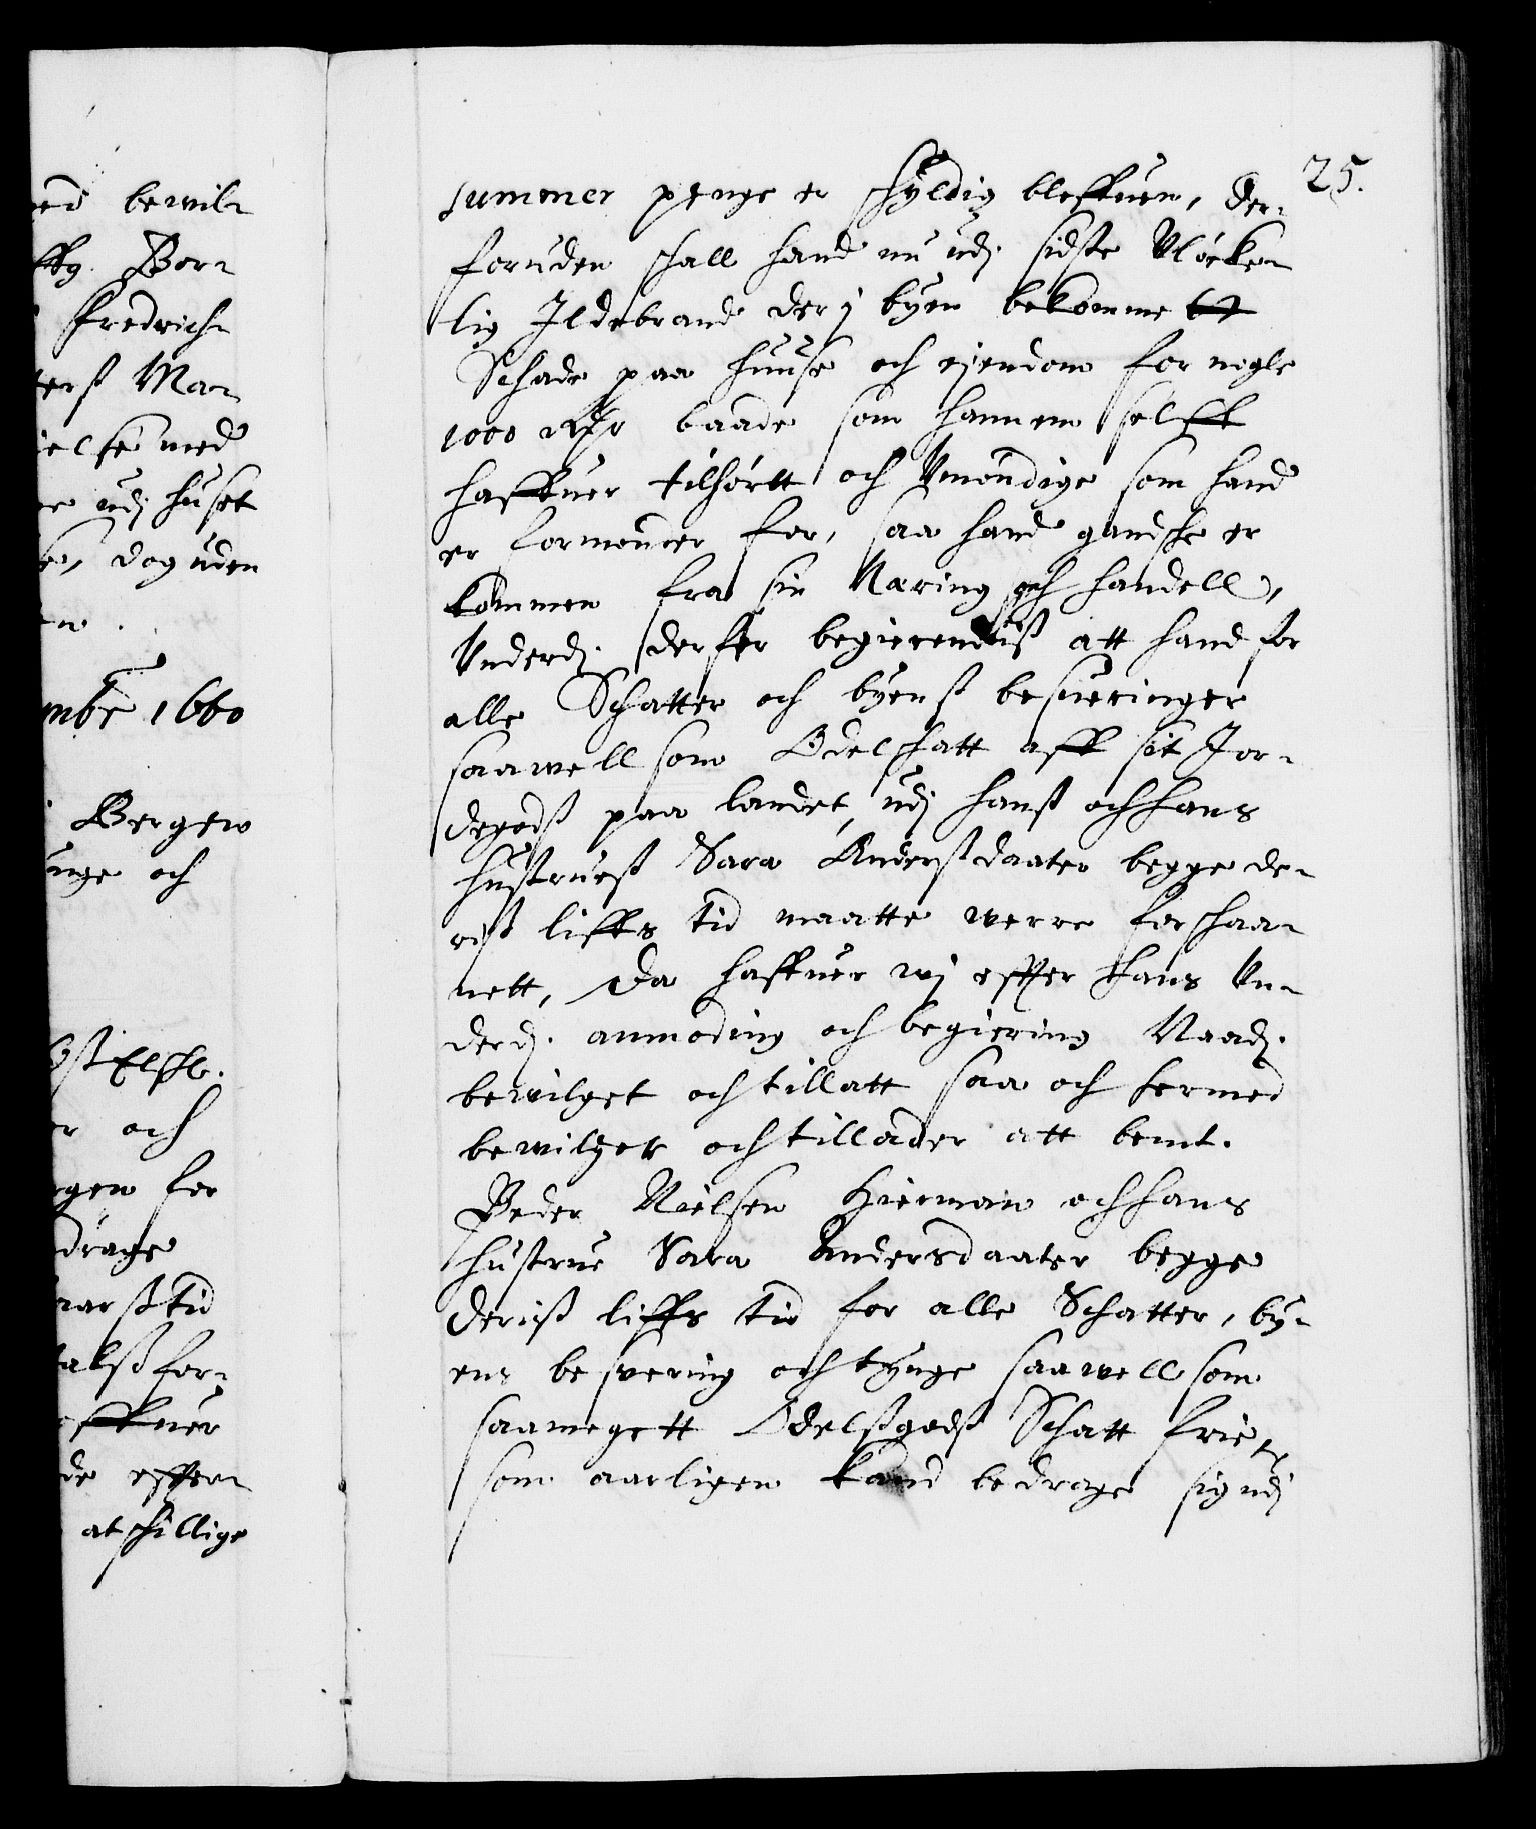 ed bewil-
ffg. Bor-
Fredrich
erß Ma-
else med
e udj huset
e, dog uden
n.
mbr 1660
Bergen
unge och
er och
gen for
drage
aarß tid
talß for-
effter-
de effter-
atschillige
25.
summer penge er schyldig bleffuen, der-
foruden schall hand nu udj sidste Ulöcke-
lig Ildebrand der j byen bekomme ett
Schade paa huuse och ejendom for nogle
1000 Rdr baade som hannem selff
haffuer tilhörtt och Umöndige som hand
er formönder for, saa hand gandsche er
kommen fra sin Næring och handell,
Underd. derfor begierendiß att hand for
alle Schatter och byenß besueringer
saawell som Odelschatt aff sit Jor-
degodß paa landet, udj hanß och hans
hustrueß Sara Anderßdaater begge de-
riß liffs tid maatte werre forschaa-
nett, Da haffuer wj effter hans Un-
derd. anmoding och begiering Naad.
bewilget och tillatt saa och hermed
bewilger och tillader att bemt.
Peder Nielsen Hierman och hans
hustrue Sara Andersdaater begge
deriß liffs tid for alle Schatter, by-
ens besvering och tynge saawell som
saamegett Odelßgodß Schatt friet
som aarligen kand bedrage sig udj